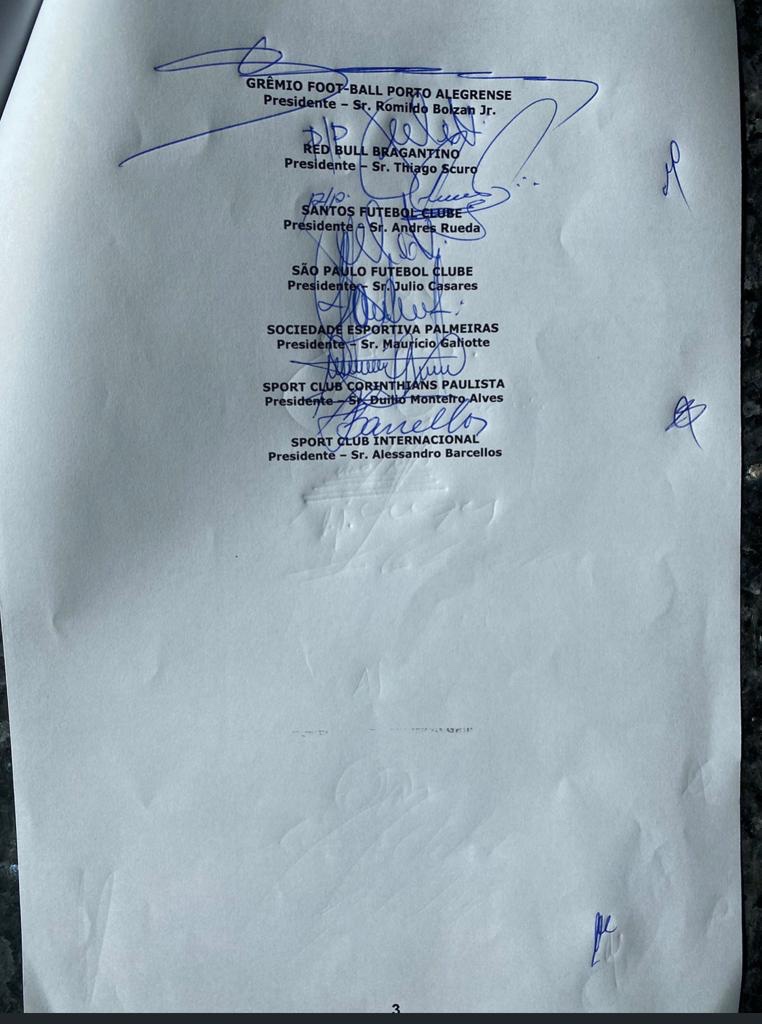 GRÊMIO FOOT-BALL PORTO ALEGRENSE
Presidente – Sr. Romildo Bolzan Jr.
P/P
RED BULL BRAGANTINO
Presidente – Sr. Thiago Scuro
P/P.
SANTOS FUTEBOL CLUBE
Presidente – Sr. Andres Rueda
SÃO PAULO FUTEBOL CLUBE
Presidente – Sr. Julio Casares
SOCIEDADE ESPORTIVA PALMEIRAS
Presidente – Sr. Maurício Galiotte
SPORT CLUB CORINTHIANS PAULISTA
Presidente – Sr. Duilio Monteiro Alves
Barcellos
SPORT CLUB INTERNACIONAL
Presidente – Sr. Alessandro Barcellos
3